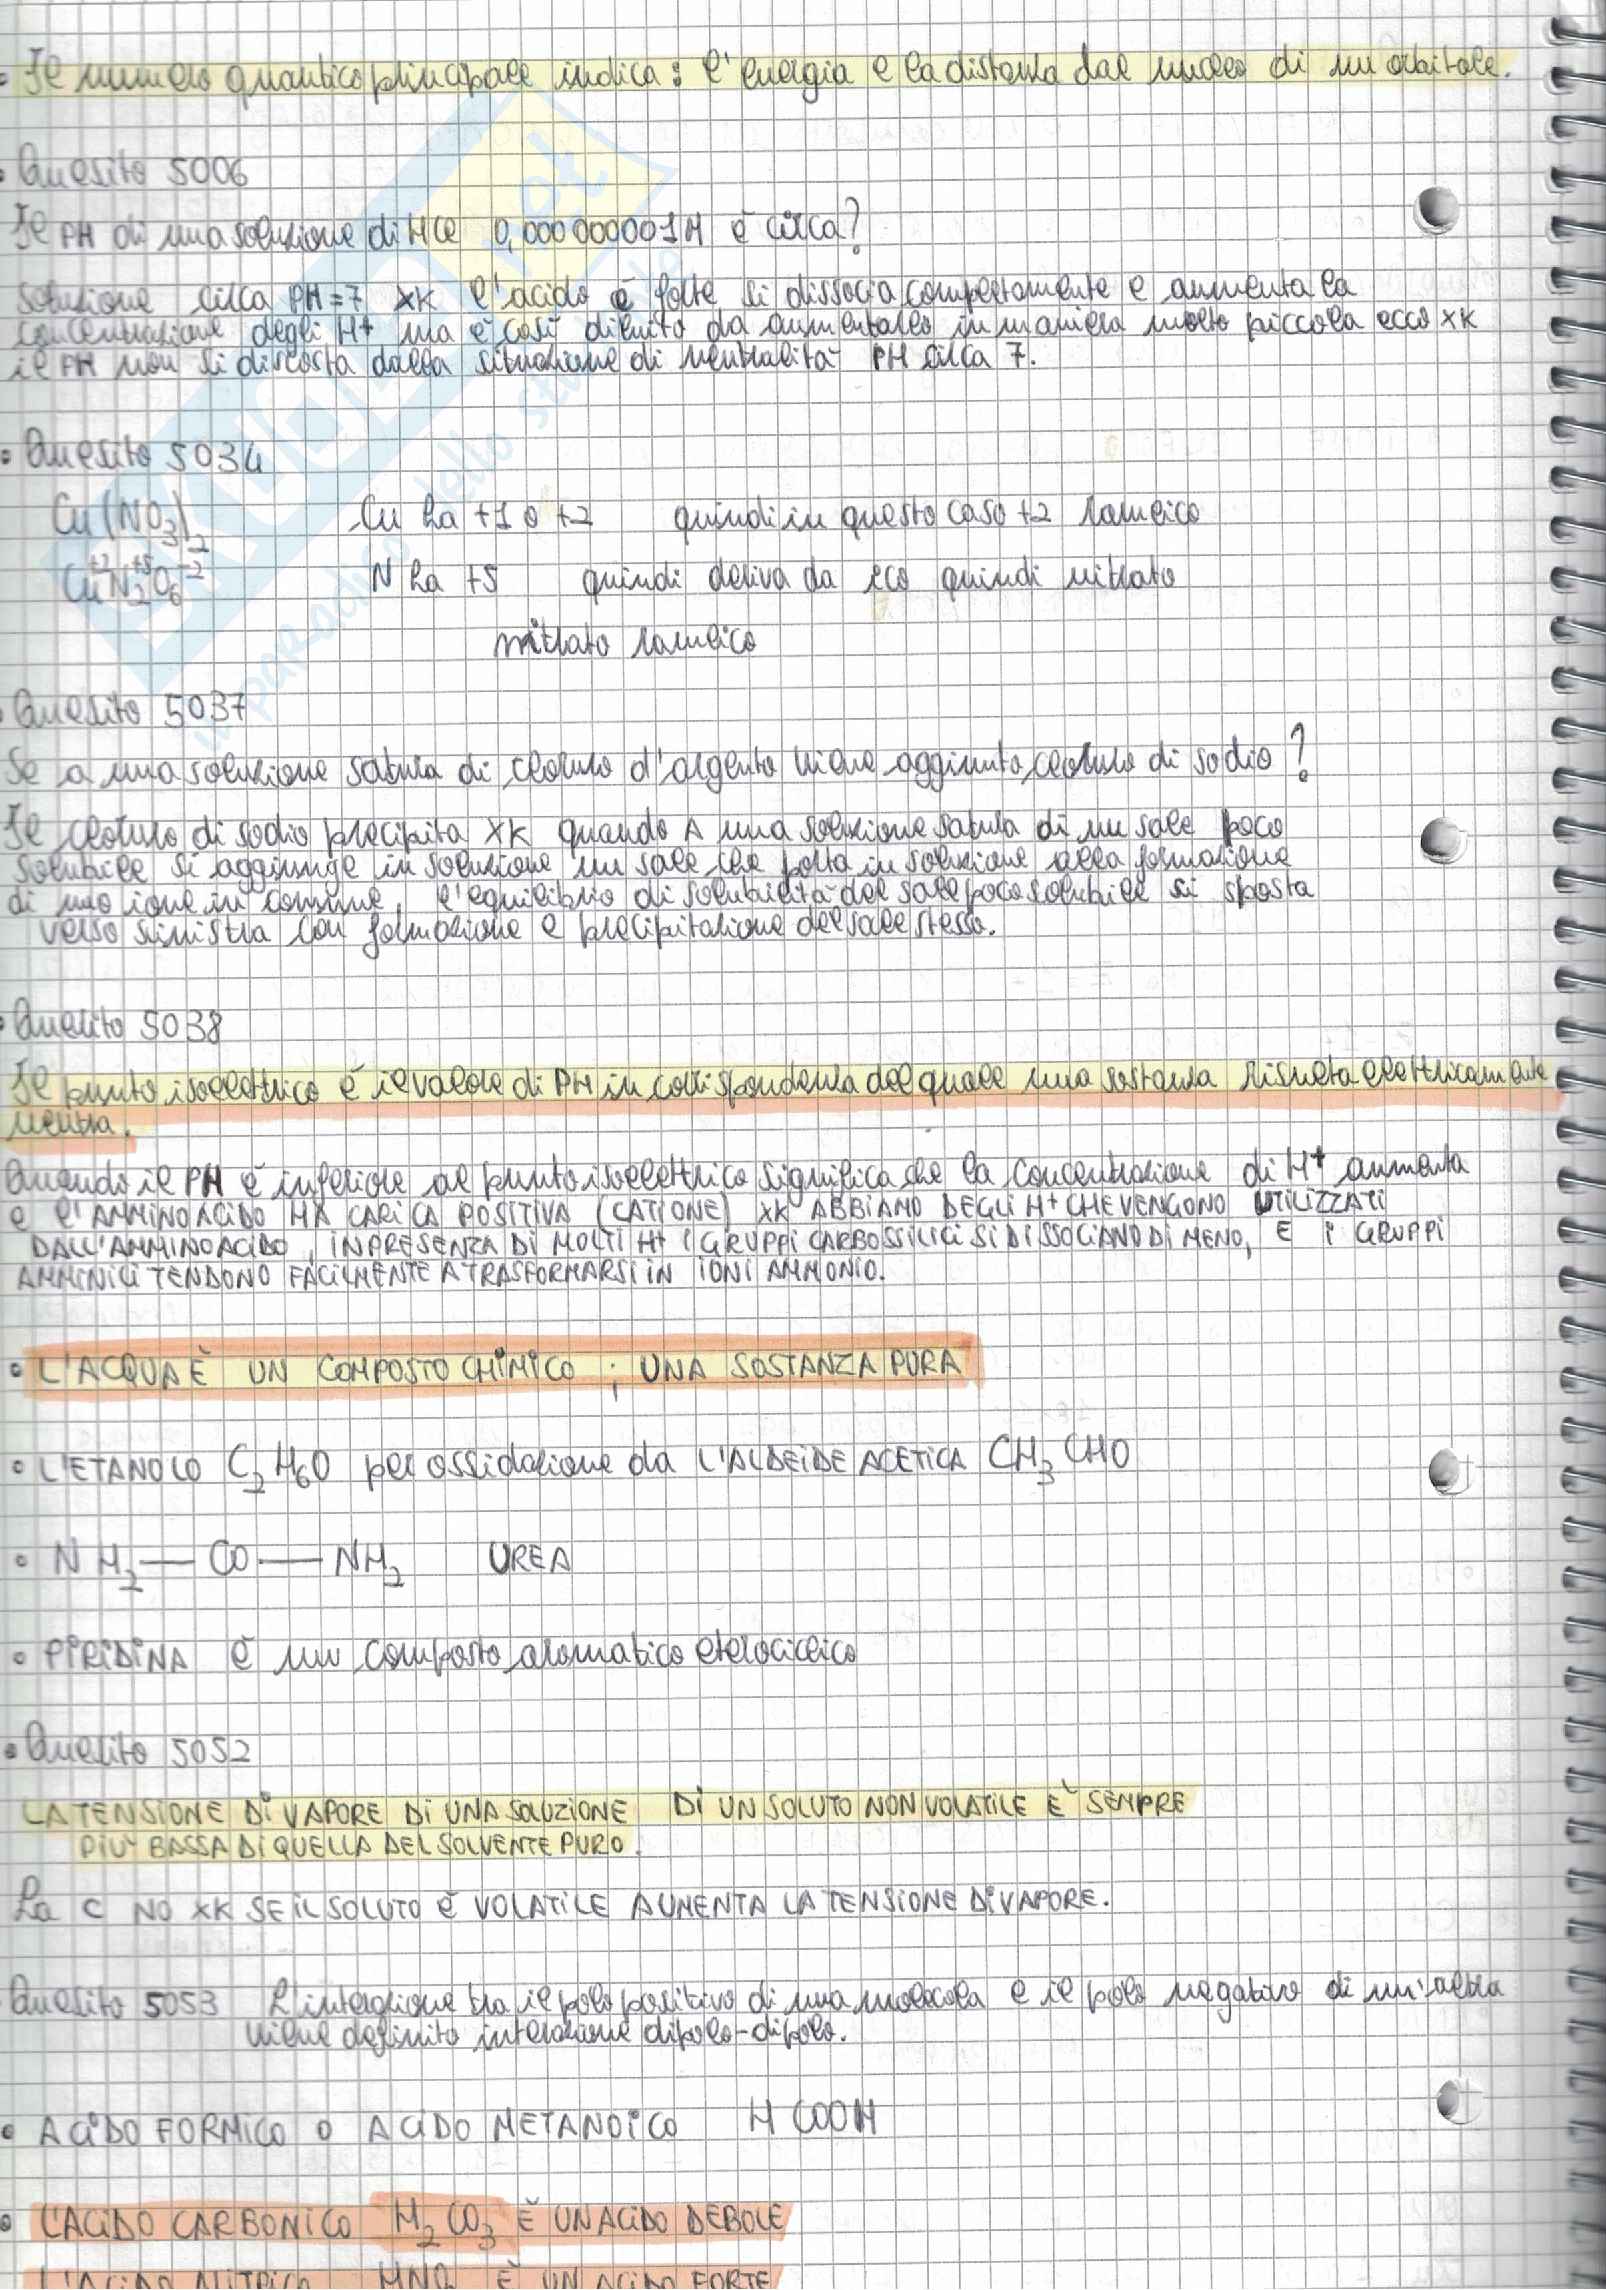 • Il numero quantico principale indica: l'energia e la distanza dal nucleo di un orbitale.
• Quesito 5006
Il PH di una soluzione di HCl 0,000000001M è circa?
soluzione circa PH=7 xK l'acido è forte si dissocia completamente e aumenta la
concentrazione degli H+ ma è così diluito da aumentarlo in maniera molto piccola ecco xK
il PH non si discosta dalla situazione di neutralità PH circa 7.
• Quesito 5034
Cu(NO3)2 Cu ha +1 o +2 quindi in questo caso +2 rameico
Cu+2 N2+5 O6-2 N ha +5 quindi deriva da ico quindi nitrato
nitrato rameico
• Quesito 5037
Se a una soluzione satura di cloruro d'argento viene aggiunto cloruro di sodio?
Il cloruro di sodio precipita xK quando A una soluzione satura di un sale poco
solubile si aggiunge in soluzione un sale che porta in soluzione alla formazione
di uno ione in comune, l'equilibrio di solubilità del sale poco solubile si sposta
verso sinistra con formazione e precipitazione del sale stesso.
• Quesito 5038
Il punto isoelettrico è il valore di PH in corrispondenza del quale una sostanza risulta elettricamente
neutra.
Quando il PH è inferiore al punto isoelettrico significa che la concentrazione di H+ aumenta
e l'AMMINOACIDO HA CARICA POSITIVA (CATIONE) XK ABBIAMO DEGLI H+ CHE VENGONO UTILIZZATI
DALL'AMMINOACIDO, IN PRESENZA DI MOLTI H+ I GRUPPI CARBOSSILICI SI DISSOCIANO DI MENO, E I GRUPPI
AMMINICI TENDONO FACILMENTE A TRASFORMARSI IN IONI AMMONIO.
• L'ACQUA È UN COMPOSTO CHIMICO ; UNA SOSTANZA PURA
• L'ETANOLO C2H6O per ossidazione da L'ALDEIDE ACETICA CH3CHO
• NH2—CO—NH2 UREA
• PIRIDINA è un composto aromatico eterociclico
• Quesito 5052
LA TENSIONE DI VAPORE DI UNA SOLUZIONE DI UN SOLUTO NON VOLATILE E' SEMPRE
PIU' BASSA DI QUELLA DEL SOLVENTE PURO.
La C NO XK SE IL SOLUTO è VOLATILE AUMENTA LA TENSIONE DI VAPORE.
Quesito 5053 L'interazione tra il polo positivo di una molecola e il polo negativo di un'altra
viene definito interazione dipolo-dipolo.
• ACIDO FORMICO O ACIDO METANOICO HCOOH
• L'ACIDO CARBONICO H2CO3 È UN ACIDO DEBOLE
L'ACIDO NITRICO HNO3 È UN ACIDO FORTE
SKUOLA.net
il paradiso dello studente